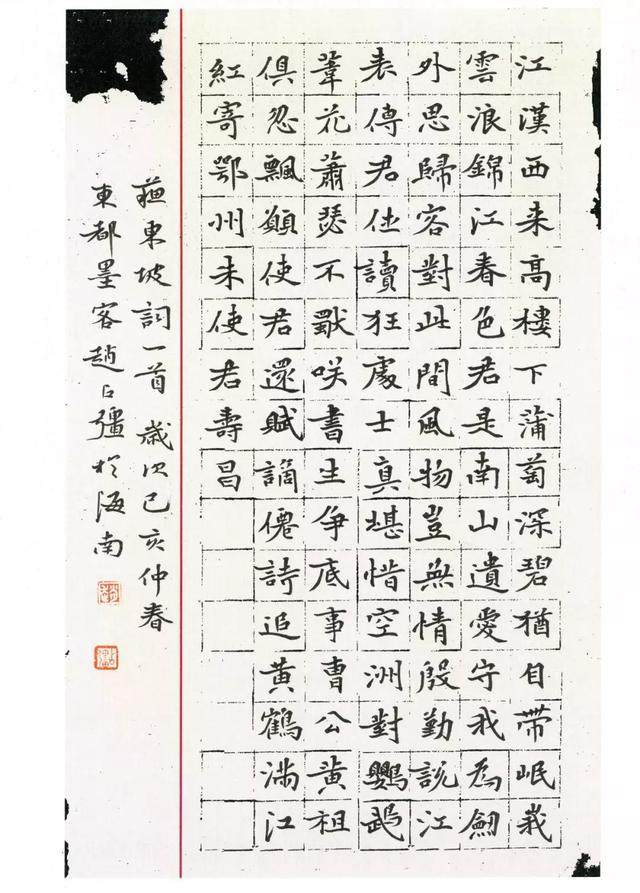 江漢西来高樓下蒲萄深碧猶自帶岷峩
雲浪錦江春色君是南山遺愛守我為劒
外思歸客對此間風物豈無情殷勤説江
表傳君休讀狂處士真堪惜空洲對鸚鵡
葦花蕭瑟不獨咲書生争底事曹公黄祖
俱忽飄願使君還賦謫僊詩追黄鶴滿江
紅寄鄂州朱使君壽昌
蘓東坡詞一首 歲次己亥仲春
東都墨客趙占彊於海南